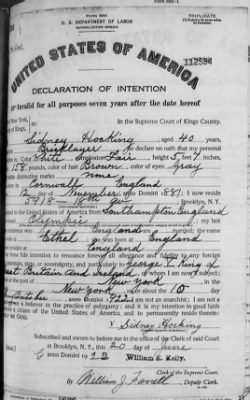 TRIPLICATE
U. S. DEPARTMENT OF LABOR
NATURALIZATION SERVICE
UNITED STATES OF AMERICA
DECLARATION OF INTENTION
Invalid for all purposes seven years after the date hereof
In the Supreme Court of Kings County.
Sidney Hocking aged 40 years,
Bricklayer do declare on oath that my personal
Color White complexion Fair height 5 feet 7 inches,
158 pounds, color of hair Brown color of eyes Gray
none
Cornwall England
November anno Domini 1881: I now reside
5918 - 18th Av
United States of America from Southampton England
Olympic my last
England
Ethel she was born at England
England
fide intention to renounce forever all allegiance and fidelity to any foreign
sovereignty, and particularly to George V King of
Great Britain and Ireland of whom I am now a subject;
at the port of New York in the
New York on or about the 10 day
October anno Domini 1922: I am not an anarchist; I am not a
believer in the practice of polygamy; and it is my intention in good faith
citizen of the United States of America, and to permanently reside therein:
x Sidney Hocking
Subscribed and sworn to before me in the office of the Clerk of said Court
at Brooklyn, N. Y., this 20 day of June
William E. Kelly.
Clerk of the Supreme Court.
By William J.
Deputy Clerk.